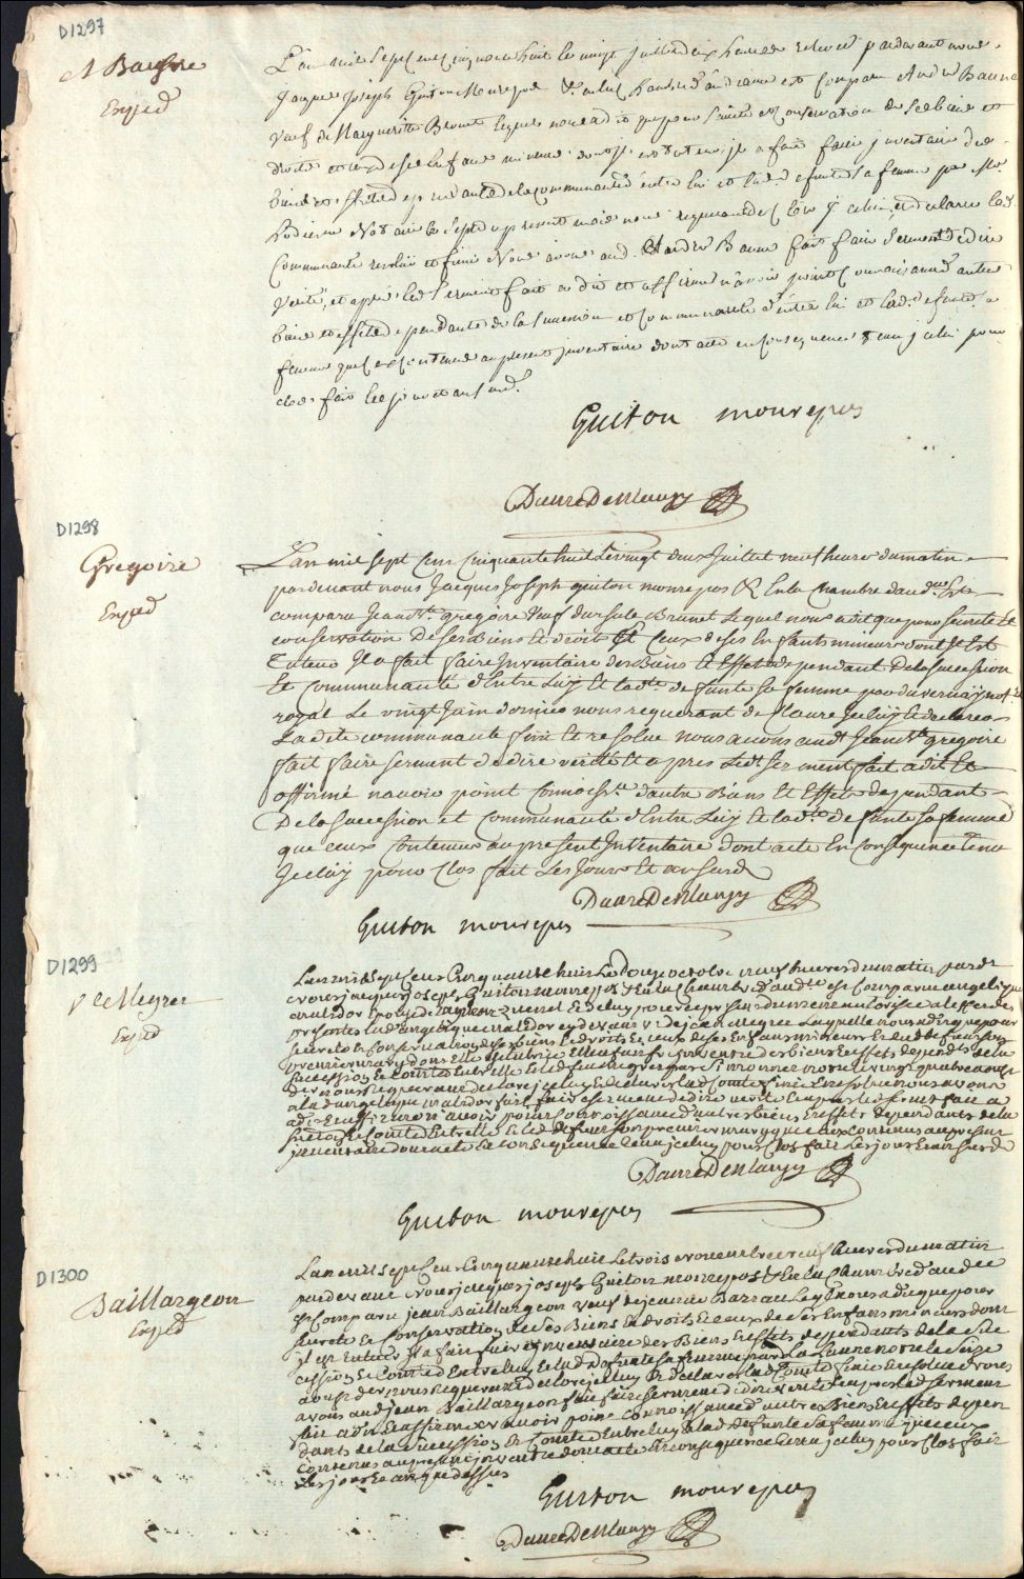 D1297
Baune
Exped
L'an mil sept cent cinquante huit le vingt juillet dix heures pardevant nous
Jacques Joseph Guiton Monrepos &c. en la chambre d'audience est comparu André Baune
veuf de Marguerite Brunet lequel nous a dit que pour sureté et conservation de ses biens et
droits et ceux de ses enfans mineurs dont il est tuteur il a fait faire inventaire des
biens et effets dependants de la communauté d'entre lui et lad. defunte sa femme par Me.
Hodiesne Notaire le sept du present mois nous requerant de clore icelui et declarer lad.
Communauté resolue et finie Nous avons aud. André Baune fait faire serment de dire
verité, et après led. serment fait a dit et affirmé n'avoir point connoissance d'autres
biens et effets dependants de la succession et communauté d'entre lui et lad. defunte sa
femme que ceux contenus au present inventaire dont acte en consequence tenu icelui pour
clos fait les jour et an susd.
Guiton monrepos
Danré DeBlanzy
D1298
Gregoire
Exped
L'an mil sept Cent Cinquante huit le vingt deux Juillet neuf heures du matin
pardevant nous Jacques Joseph guiton monrepos &c En la Chambre daud.ce Est
comparu Jean Bte. gregoire veuf dursule Brunet Lequel nous a dit que pour seureté Et
conservation De ses Biens Et droits Et Ceux de ses Enfants mineurs dont Il Est
Tuteur Il a fait faire Inventaire des Biens Et Effets dependant De la succession
Et communauté d'Entre Luy Et ladte. defunte sa femme par duvernay not.
royal Le vingt Juin dernier nous requerant de Clorre Iceluy Et declarer
Ladite communauté finie Et resolue nous avons aud.t Jean Bte gregoire
fait faire serment de dire verité Et apres Led.t serment fait a dit Et
affirmé navoir point Connoissce dautres Biens Et Effets dependant
De la succession et Communauté d'Entre Luy Et lad.te defunte sa femme
que ceux Contenus au present Inventaire dont acte En Consequence Tenu
Iceluy pour Clos fait Les Jour Et an susd.
Danré DeBlanzy
Guiton monrepos
D1299
Ve Megret
Exped
Lan mil sept Cent Cinquante huit Le Douze octobre neuf heures du matin pardt
nous jacques joseph Guiton monrepos &c En la Chambre d'audce est Comparu angelique
presentes Lad. angelique de jean Megret Laquelle nous a dit que pour
sureté Et Conservation de ses biens Et droits Et ceux de ses Enfans mineurs
premier mary dont Elle Est tutrice Elle a fait faire inventaire des biens Et effets dependts de la
succession Et Comté d'Entre Elle Et led. feu megret par Simonnet
der nous requerant de clore iceluy Et declarer lad Comté finie Et resolue nous avons
a lad angelique fait faire serment de dire verité Et après led serment fait a
dit Et affirmé n'avoir point Connoissance d'autres biens Et effets dependants de la
succession Et Comté d'Entre Elle Et led defunt son premier mary que ceux Contenus au present
inventaire dont acte En Consequence tenu iceluy pour Clos fait Les jour Et an susd
Danré DeBlanzy
Guiton monrepos
D1300
Baillargeon
Exped
Lan mil sept Cent Cinquante huit Le trois novembre neuf heures du matin
pardevant nous jacques joseph Guiton monrepos &c En la Chambre d'audce
Est Comparu jean Baillargeon veuf de jeanne Barrau Lequel nous a dit que pour
sureté Et Conservation de ses Biens Et droits Et ceux de ses Enfans mineurs dont
il est tuteur il a fait faire inventaire des Biens Et effets dependants de la suc
cession Et Comté d'Entre luy Et lad Defunte sa femme par La Lanne nore le seize
aoust der nous requerant de clore iceluy Et declarer lad Comté finie Et resolue nous
avons aud jean Baillargeon fait faire serment de dire verité Et apres led serment
fait a dit Et affirmé n'avoir point Connoissance d'autres Biens Et effets depen
dants de la succession Et Comté d'Entre luy Et lad Defunte sa femme que ceux
Contenus au present inventaire dont acte En Consequence tenu iceluy pour Clos fait
Les jour Et an que dessus
Guiton monrepos
Danré DeBlanzy